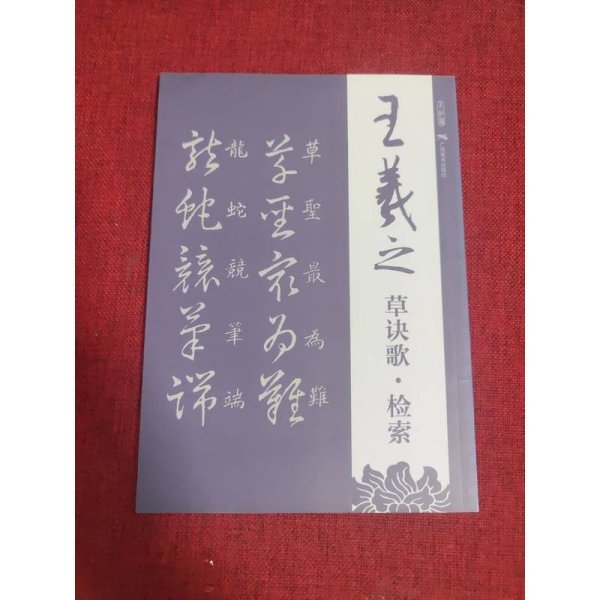 王羲之
草诀歌·检索
草聖最為難
草聖最為難
龍蛇競筆端
龍蛇競筆端